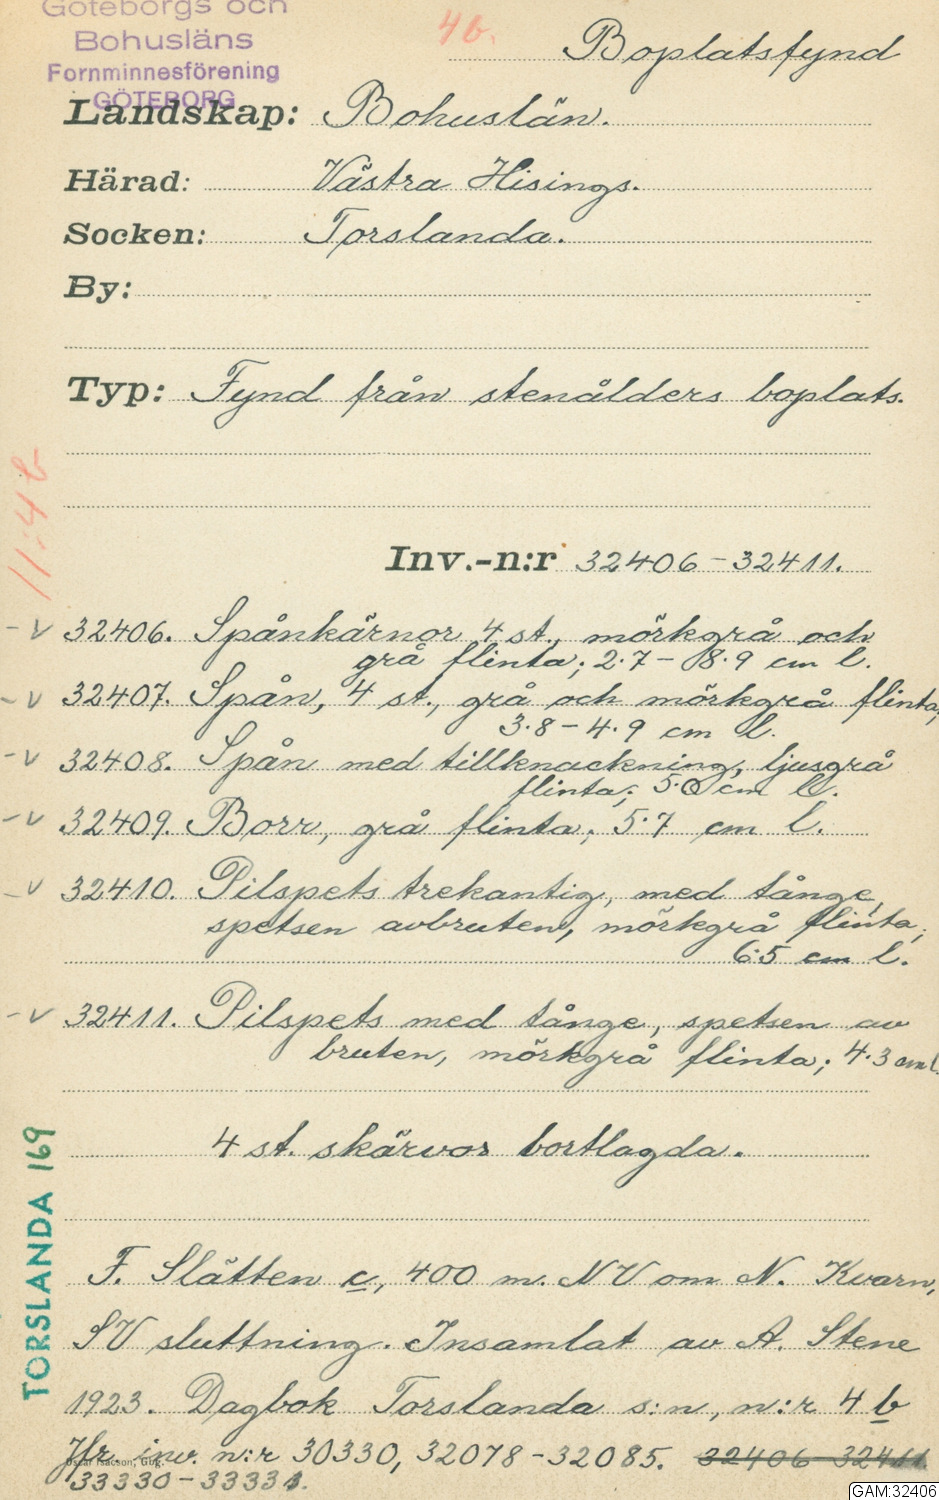 Göteborgs och
Bohusläns
Fornminnesförening
GÖTEBORG
4b.
Boplatsfynd
Landskap: Bohuslän.
Härad: Västra Hisings.
Socken: Torslanda.
By:
Typ: Fynd från stenålders boplats.
11:4b
Inv.-n:r 32406-32411.
-v 32406. Spånkärnor 4 st., mörkgrå och
grå flinta; 2.7-8.9 cm l.
-v 32407. Spån, 4 st., grå och mörkgrå flinta,
3.8-4.9 cm l.
-v 32408. Spån med tillknackning, ljusgrå
flinta; 5.0 cm l.
-v 32409. Borr, grå flinta; 5.7 cm l.
-v 32410. Pilspets trekantig, med tånge,
spetsen avbruten, mörkgrå flinta;
6.5 cm l.
-v 32411. Pilspets med tånge, spetsen av
bruten, mörkgrå flinta; 4.3 cm l.
4 st. skärvor bortlagda.
TORSLANDA 169
F. Slätten c, 400 m. NV om N. Kvarn,
SV sluttning. Insamlat av A. Stene
1923. Dagbok Torslanda s:n, n:r 4 b
Jfr. inv. n:r 30330, 32078-32085. 32406-32411.
Oscar Isacson, Gbg.
33330-33331.
GAM:32406